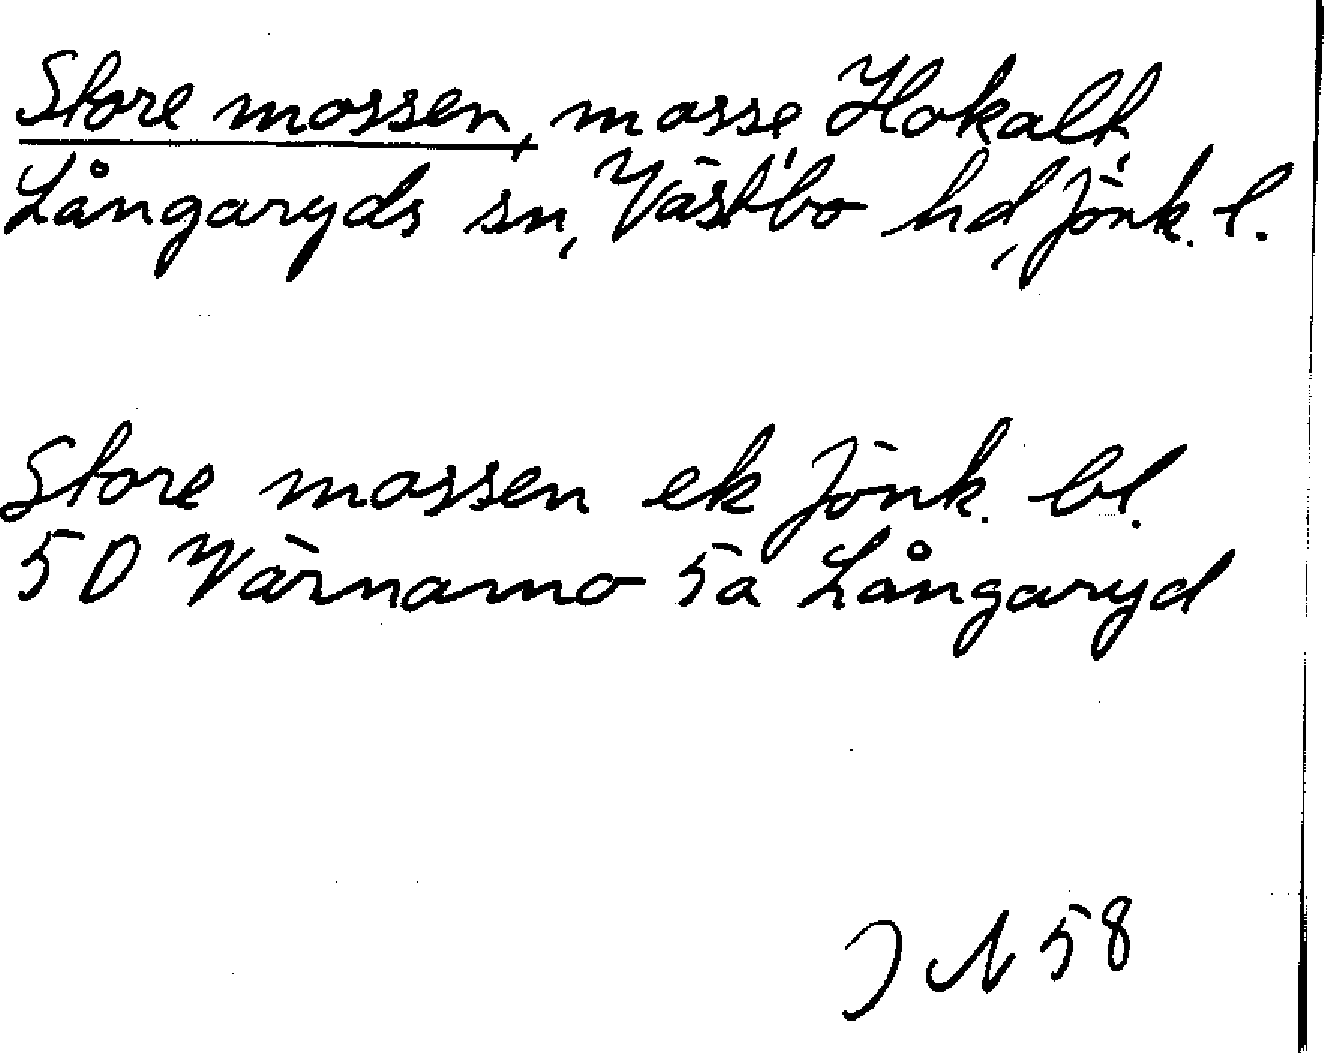 Store mossen, mosse Hokalt
Långaryds sn, Västbo hd, Jönk. l.
Store mossen ek Jönk. bl.
5D Värnamo 5a Långaryd
J N 58